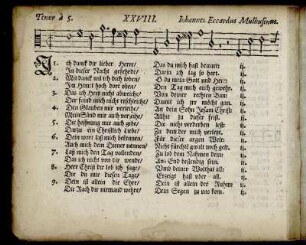 Tenor à 5. XXVIII. Johannes Eccardus Mulhusinus.
1. Ich danck dir lieber Herre/ Das du mich hast bewart ij.
In dieser Nacht geferde/ Darin ich lag so hart. ij.
2. Mit danck wil ich dich loben/ O du mein Gott und Herr ij.
Im Himel hoch dort oben/ Den Tag mich auch gewehr. ij.
3. Das ich Herr nicht abweiche/ Von deiner rechten Ban ij.
Der Feind mich nicht erschleiche/ Damit ich irr möcht gan. ij.
4. Den Glauben mir verleihe/ An dein Sohn Jesum Christ ij.
Mein Sünd mir auch verzeihe/ Allhie zu dieser frist. ij.
5. Die hoffnung mir auch gibe/ Die nicht verderben leßt ij.
Darzu ein Christlich Liebe/ Zu dem der mich verletzt. ij.
6. Dein wort laß mich bekennen/ Für dieser argen Welt ij.
Auch mich dein Diener nennen/ Nicht fürchtn gwalt noch gelt. ij.
7. Laß mich den Tag vollenden/ Zu lob dem Namen dein ij.
Das ich nicht von dir wende/ Ans End bestendig sein. ij.
8. Herr Christ dir lob ich sage/ ij.
9. Dein ist allein die Ehre/ Dein ist allein der Ruhm ij.
Die Rach dir niemand wehret/ Dein Segen zu uns kom. ij.